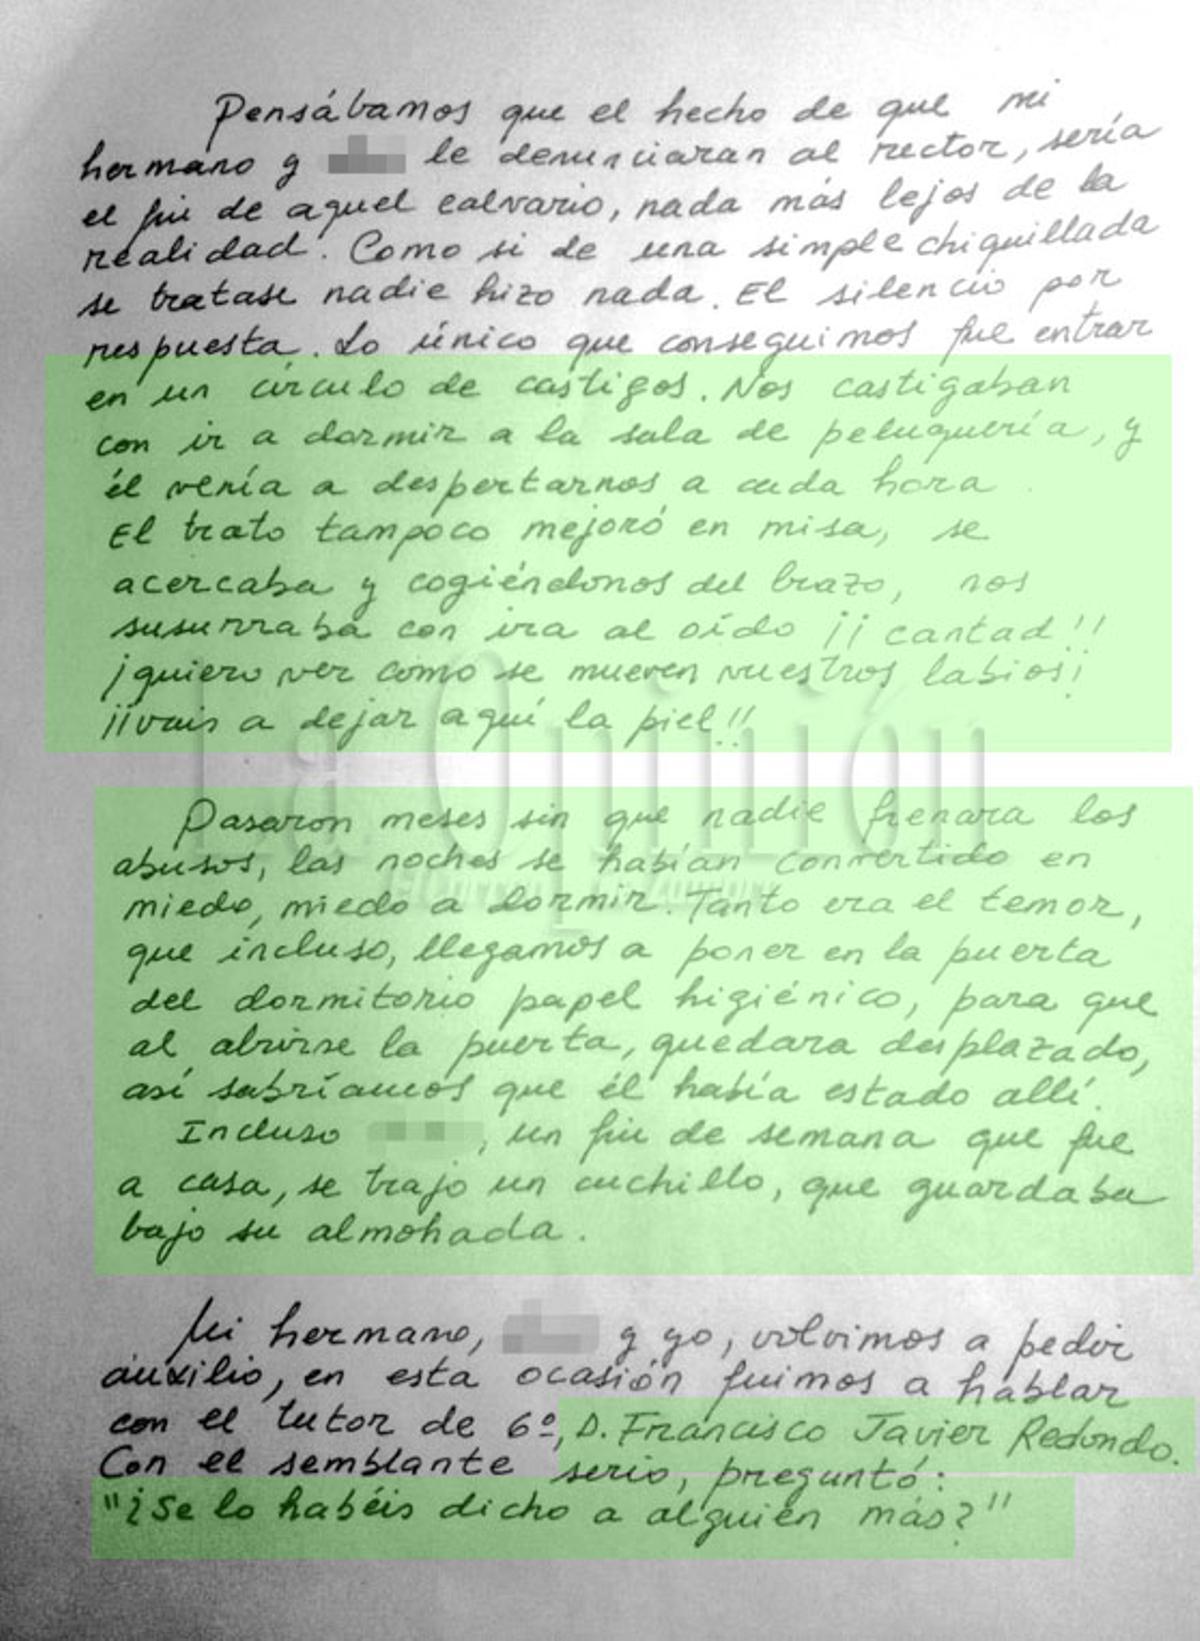 Pensábamos que el hecho de que mi
hermano y le denunciaran al rector, sería
el fin de aquel calvario, nada más lejos de la
realidad. Como si de una simple chiquillada
se tratase nadie hizo nada. El silencio por
respuesta. Lo único que conseguimos fue entrar
en un círculo de castigos. Nos castigaban
con ir a dormir a la sala de peluquería, y
él venía a despertarnos a cada hora.
El trato tampoco mejoró en misa, se
acercaba y cogiéndonos del brazo, nos
susurraba con ira al oído ¡¡cantad!!
¡quiero ver como se mueven vuestros labios¡
¡¡vais a dejar aquí la piel!!
La Opinión
Pasaron meses sin que nadie frenara los
abusos, las noches se habían convertido en
miedo, miedo a dormir. Tanto era el temor,
que incluso, llegamos a poner en la puerta
del dormitorio papel higiénico, para que
al abrirse la puerta, quedara desplazado,
así sabríamos que él había estado allí.
Incluso , un fin de semana que fue
a casa, se trajo un cuchillo, que guardaba
bajo su almohada.
Mi hermano, y yo, volvimos a pedir
auxilio, en esta ocasión fuimos a hablar
con el tutor de 6º, D. Francisco Javier Redondo.
Con el semblante serio, preguntó:
"¿Se lo habéis dicho a alguien más?"